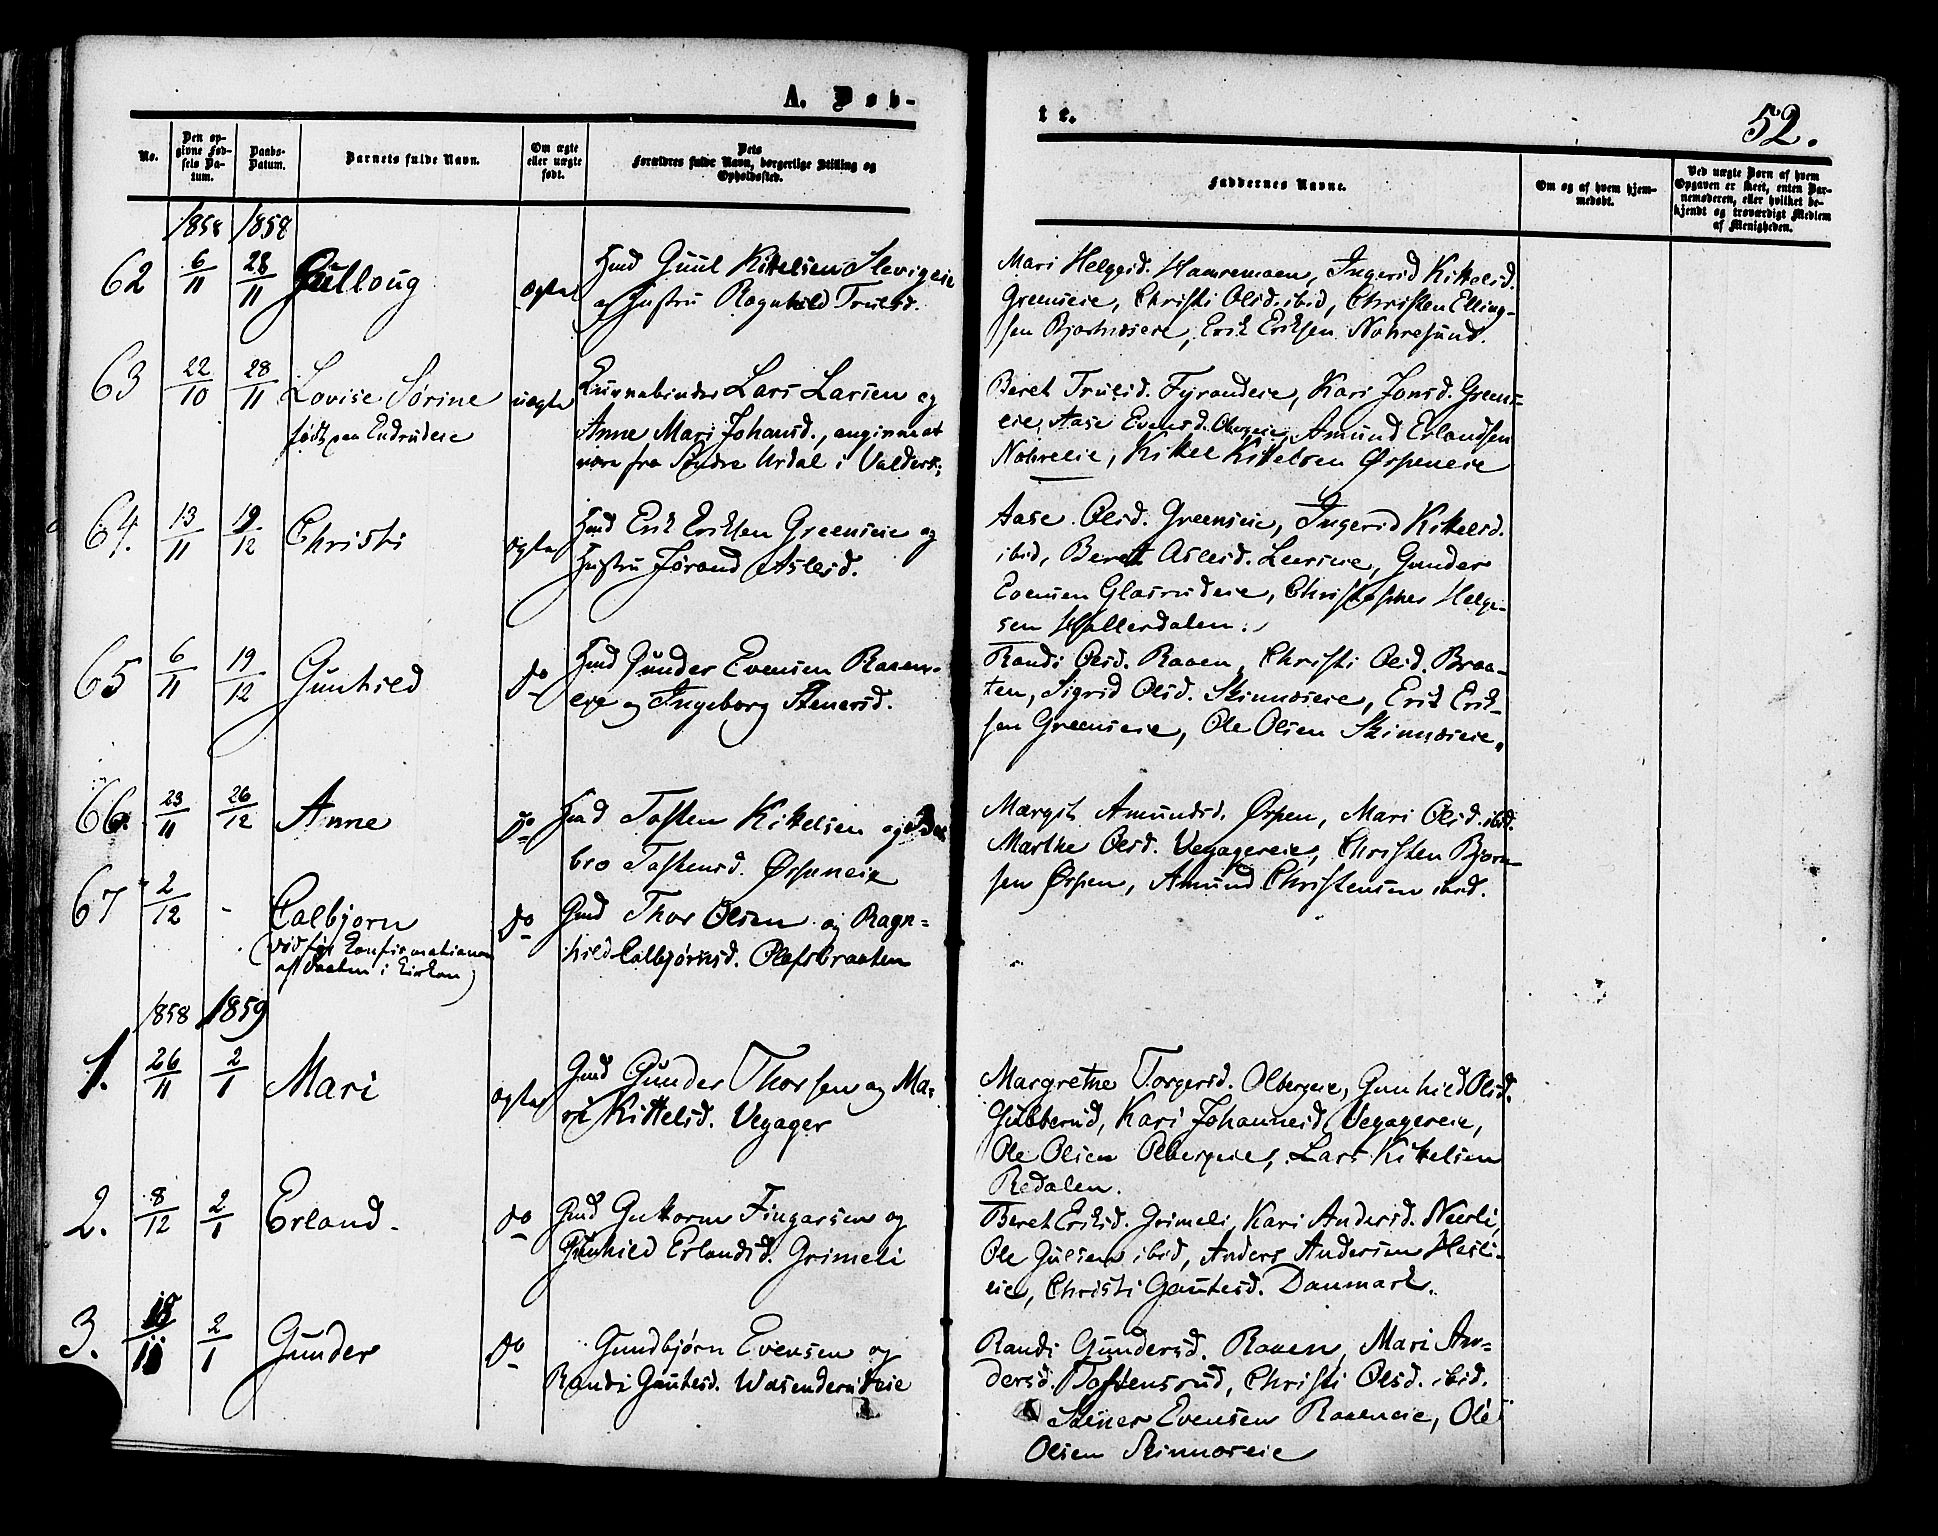 A. Døb-
te.
52.
No.
Den opgivne Fødsels Datum.
Daabs-Datum.
Barnets fulde Navn.
Om ægte eller uægte født.
Dets Forældres fulde Navn, borgerlige Stilling og Opholdssted.
Faddernes Navne.
Om og af hvem hjemmedøbt.
Ved uægte Børn af hvem Opgaven er skeet, enten Barnemoderen, eller hvilket bekjendt og troværdigt Medlem af Menigheden.
1858 1858
62 6/11 28/11 Gulloug ægte
Hmd Guul Kittelsen Slevigeie
og Hustru Ragnhild Trulsd.
Mari Helgesd. Hamremoen, Ingerid Kittelsd.
Greenseie, Christi Olsd. ibid, Christen Elling-
sen Bjertnæseie, Erik Eriksen Nohresund.
63 22/10 28/11 Lovise Sørine uægte
født paa Endrudeie
Lars Larsen og
Anne Mari Johansd., angivne at
være fra Søndre Urdal i Valders;
Beret Trulsd. Fyrandeie, Kari Jonsd. Greens-
eie, Aase Evensd. Olbergeie, Amund Erlandsen
Nohreeie, Kittel Kittelsen Ørpeneie
64. 13/11 19/12 Christi ægte
Hmd Erik Eriksen Greenseie og
Hustru Jørand Aslesd.
Aase Olsd. Greenseie, Ingerid Kittelsd.
ibid, Beret Aslesd. Leerseie, Gunder
Evensen Glasrudeie, Christopher Helge-
sen Hallerdalen.
65 6/11 19/12 Gunhild do
Hmd Gunder Evensen Raaen-
eie og Ingeborg Stenersd.
Randi Olsd. Raaen, Christi Olsd. Braa-
ten, Sigrid Olsd. Skinnæseie, Erik Erik-
sen Greenseie, Ole Olsen Skinnæseie.
66. 23/11 26/12 Anne do
Hmd Tosten Kittelsen og
bro Tostensd. Ørpeneie
Margit Amundsd. Ørpen, Mari Olsd. ibid.
Marthe Olsd. Veyagereie, Christen Bjørn-
sen Ørpen, Amund Christensen ibid.
67 2/12 - Colbjørn do
(død før Confirmationen
af Daaben i Kirken)
Gmd Thor Olsen og Ragn-
hild Colbjørnsd. Olafsbraaten
1858 1859
1. 26/11 2/1 Mari ægte
Gmd Gunder Thorsen og Ma-
ri Kittelsd. Veyager
Margrethe Torgersd. Olbergeie, Gunhild Olsd.
Gubberud, Kari Johannesd Veyagereie,
Ole Olsen Olbergeie, Lars Kittelsen
Redalen.
2. 8/12 2/1 Erland. do
Gmd Guttorm Fingarsen og
Gunhild Erlandsd. Grimeli
Beret Eriksd. Grimeli, Kari Andersd. Neerli,
Ole Gulsen ibid, Anders Andersen Hesli-
eie, Christi Gautesd. Danmark.
3. 18/11 2/1 Gunder do
Gundbjørn Evensen og
Randi Gautesd. Wasenderudeie
Randi Gundersd. Raaen, Mari An-
dersd. Tostensrud, Christi Olsd. ibid.
Stener Evensen Raaeneie, Ole
Olsen Skinnæseie